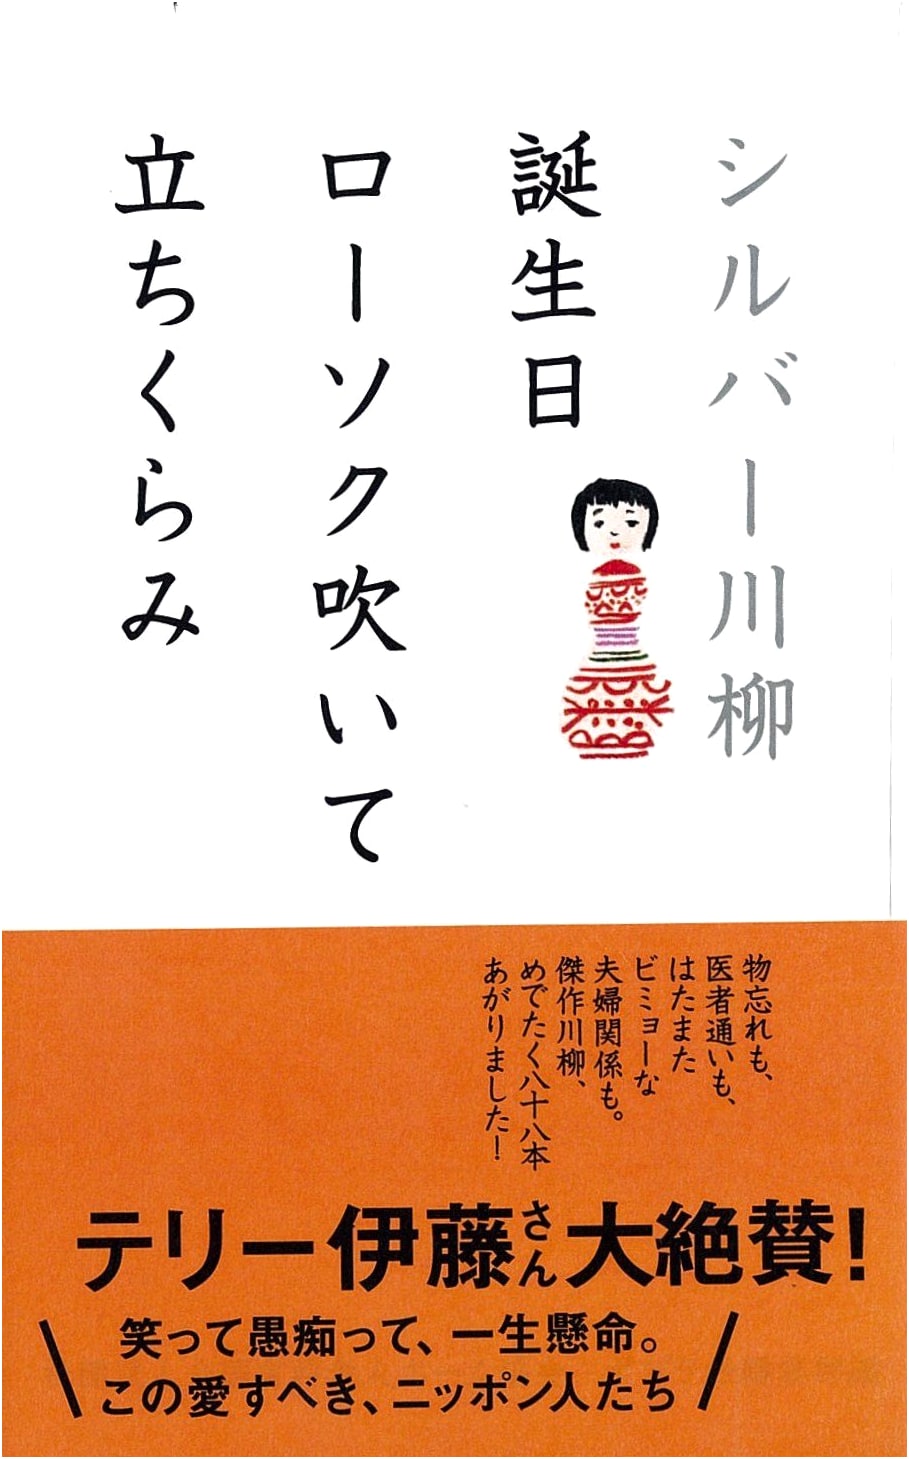 シルバー川柳
誕生日
ローソク吹いて
立ちくらみ
物忘れも、
医者通いも、
はたまた
ビミョーな
夫婦関係も。
傑作川柳、
めでたく八十八本
あがりました!
テリー伊藤さん大絶賛!
笑って愚痴って、一生懸命。
この愛すべき、ニッポン人たち